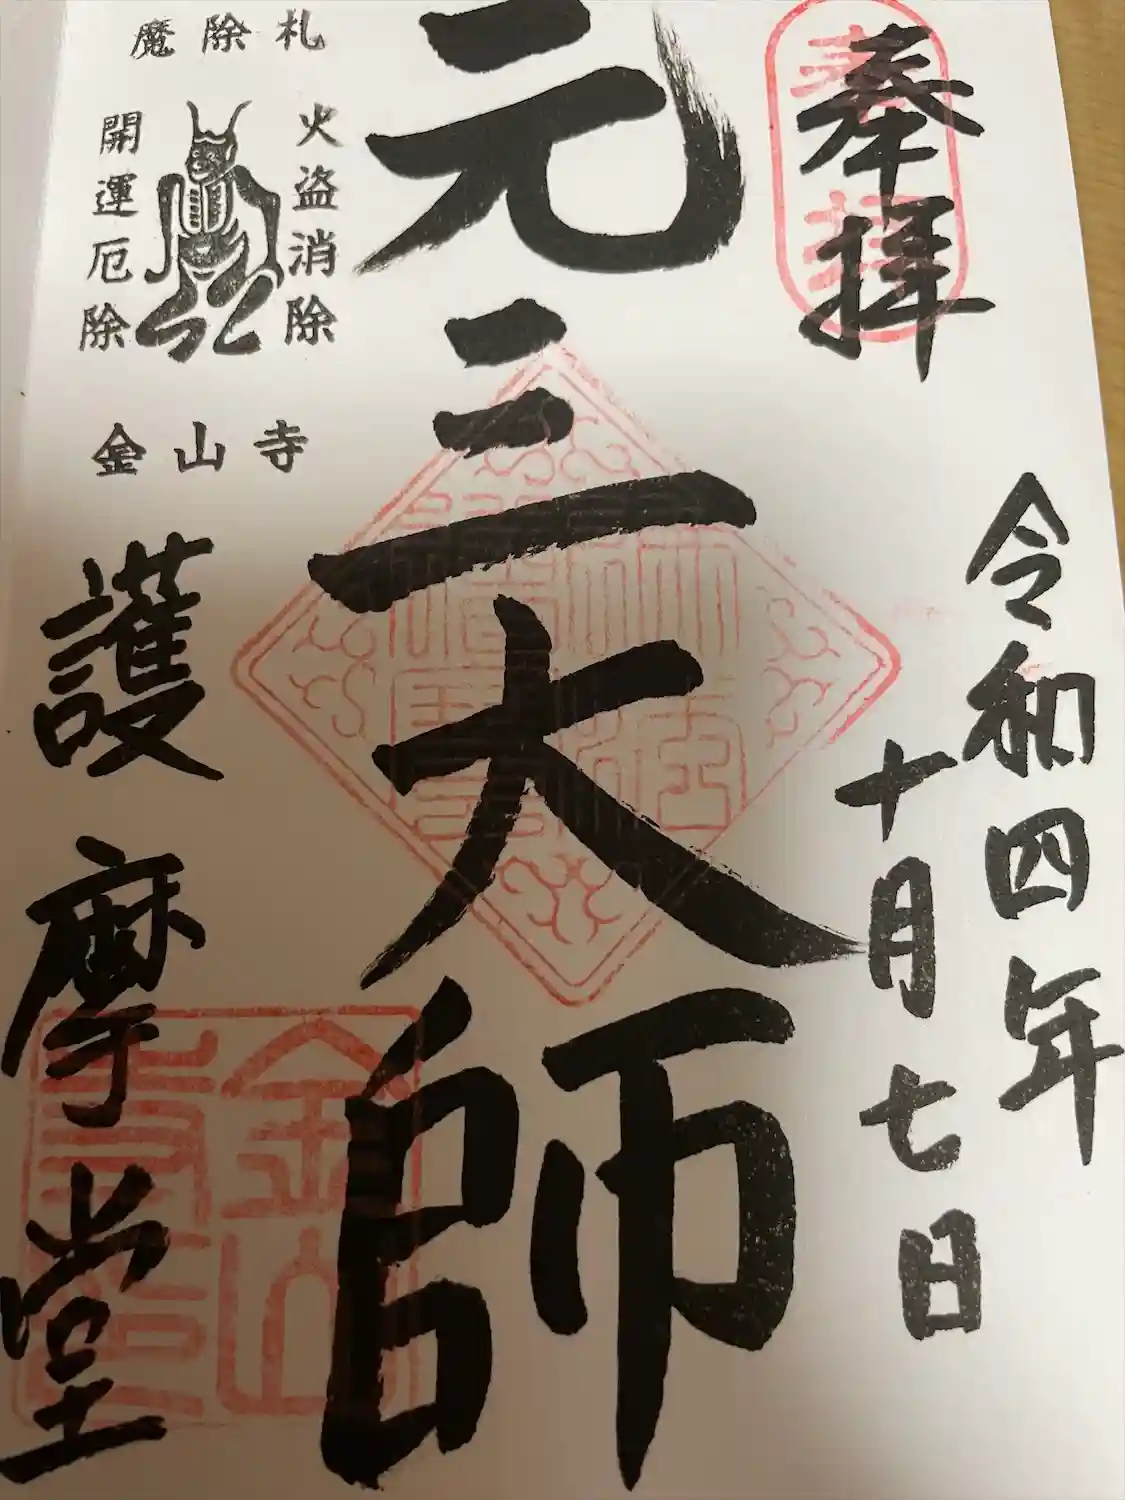 奉拝
令和四年
十月七日
元三大師
魔除札
火盗消除
開運厄除
金山寺
護摩堂